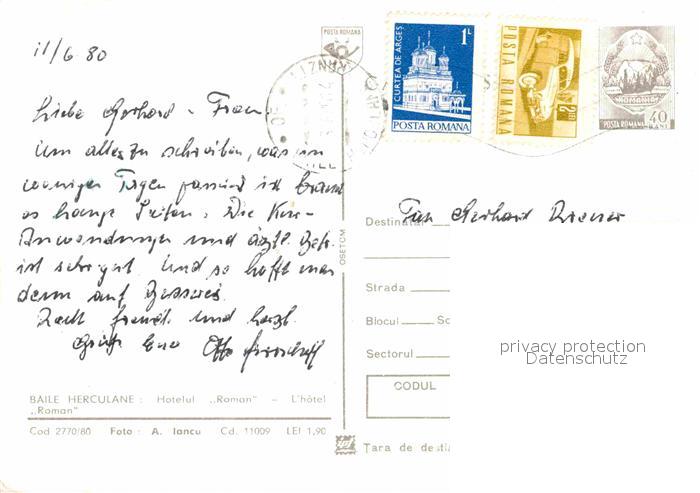 11/6 80
Liebe Gerhard u. Frau.
Um alles zu schreiben, was in
wenigen Tagen passiert ist braucht
es lange Seiten. Die Kur-
Anwendungen und ärztl. Betr.
ist sehr gut. Und so hofft man
denn auf
Recht freundl. und herzl.
Grüße Euer Otto
BAILE HERCULANE : Hotelul „Roman" – L'hôtel
„Roman"
Cod 2770/80 Foto : A. Iancu Cd. 11009 LEI 1,90
OSETCM
POSTA ROMANA
1L
CURTEA DE ARGEȘ
POSTA ROMANA
POSTA ROMANA
2 LEI
ROMANIA
POSTA ROMANA
40 BANI
Destinatar
Fam Gerhard
Strada
Blocul Sc
Sectorul
privacy protection
Datenschutz
CODUL
Țara de desti